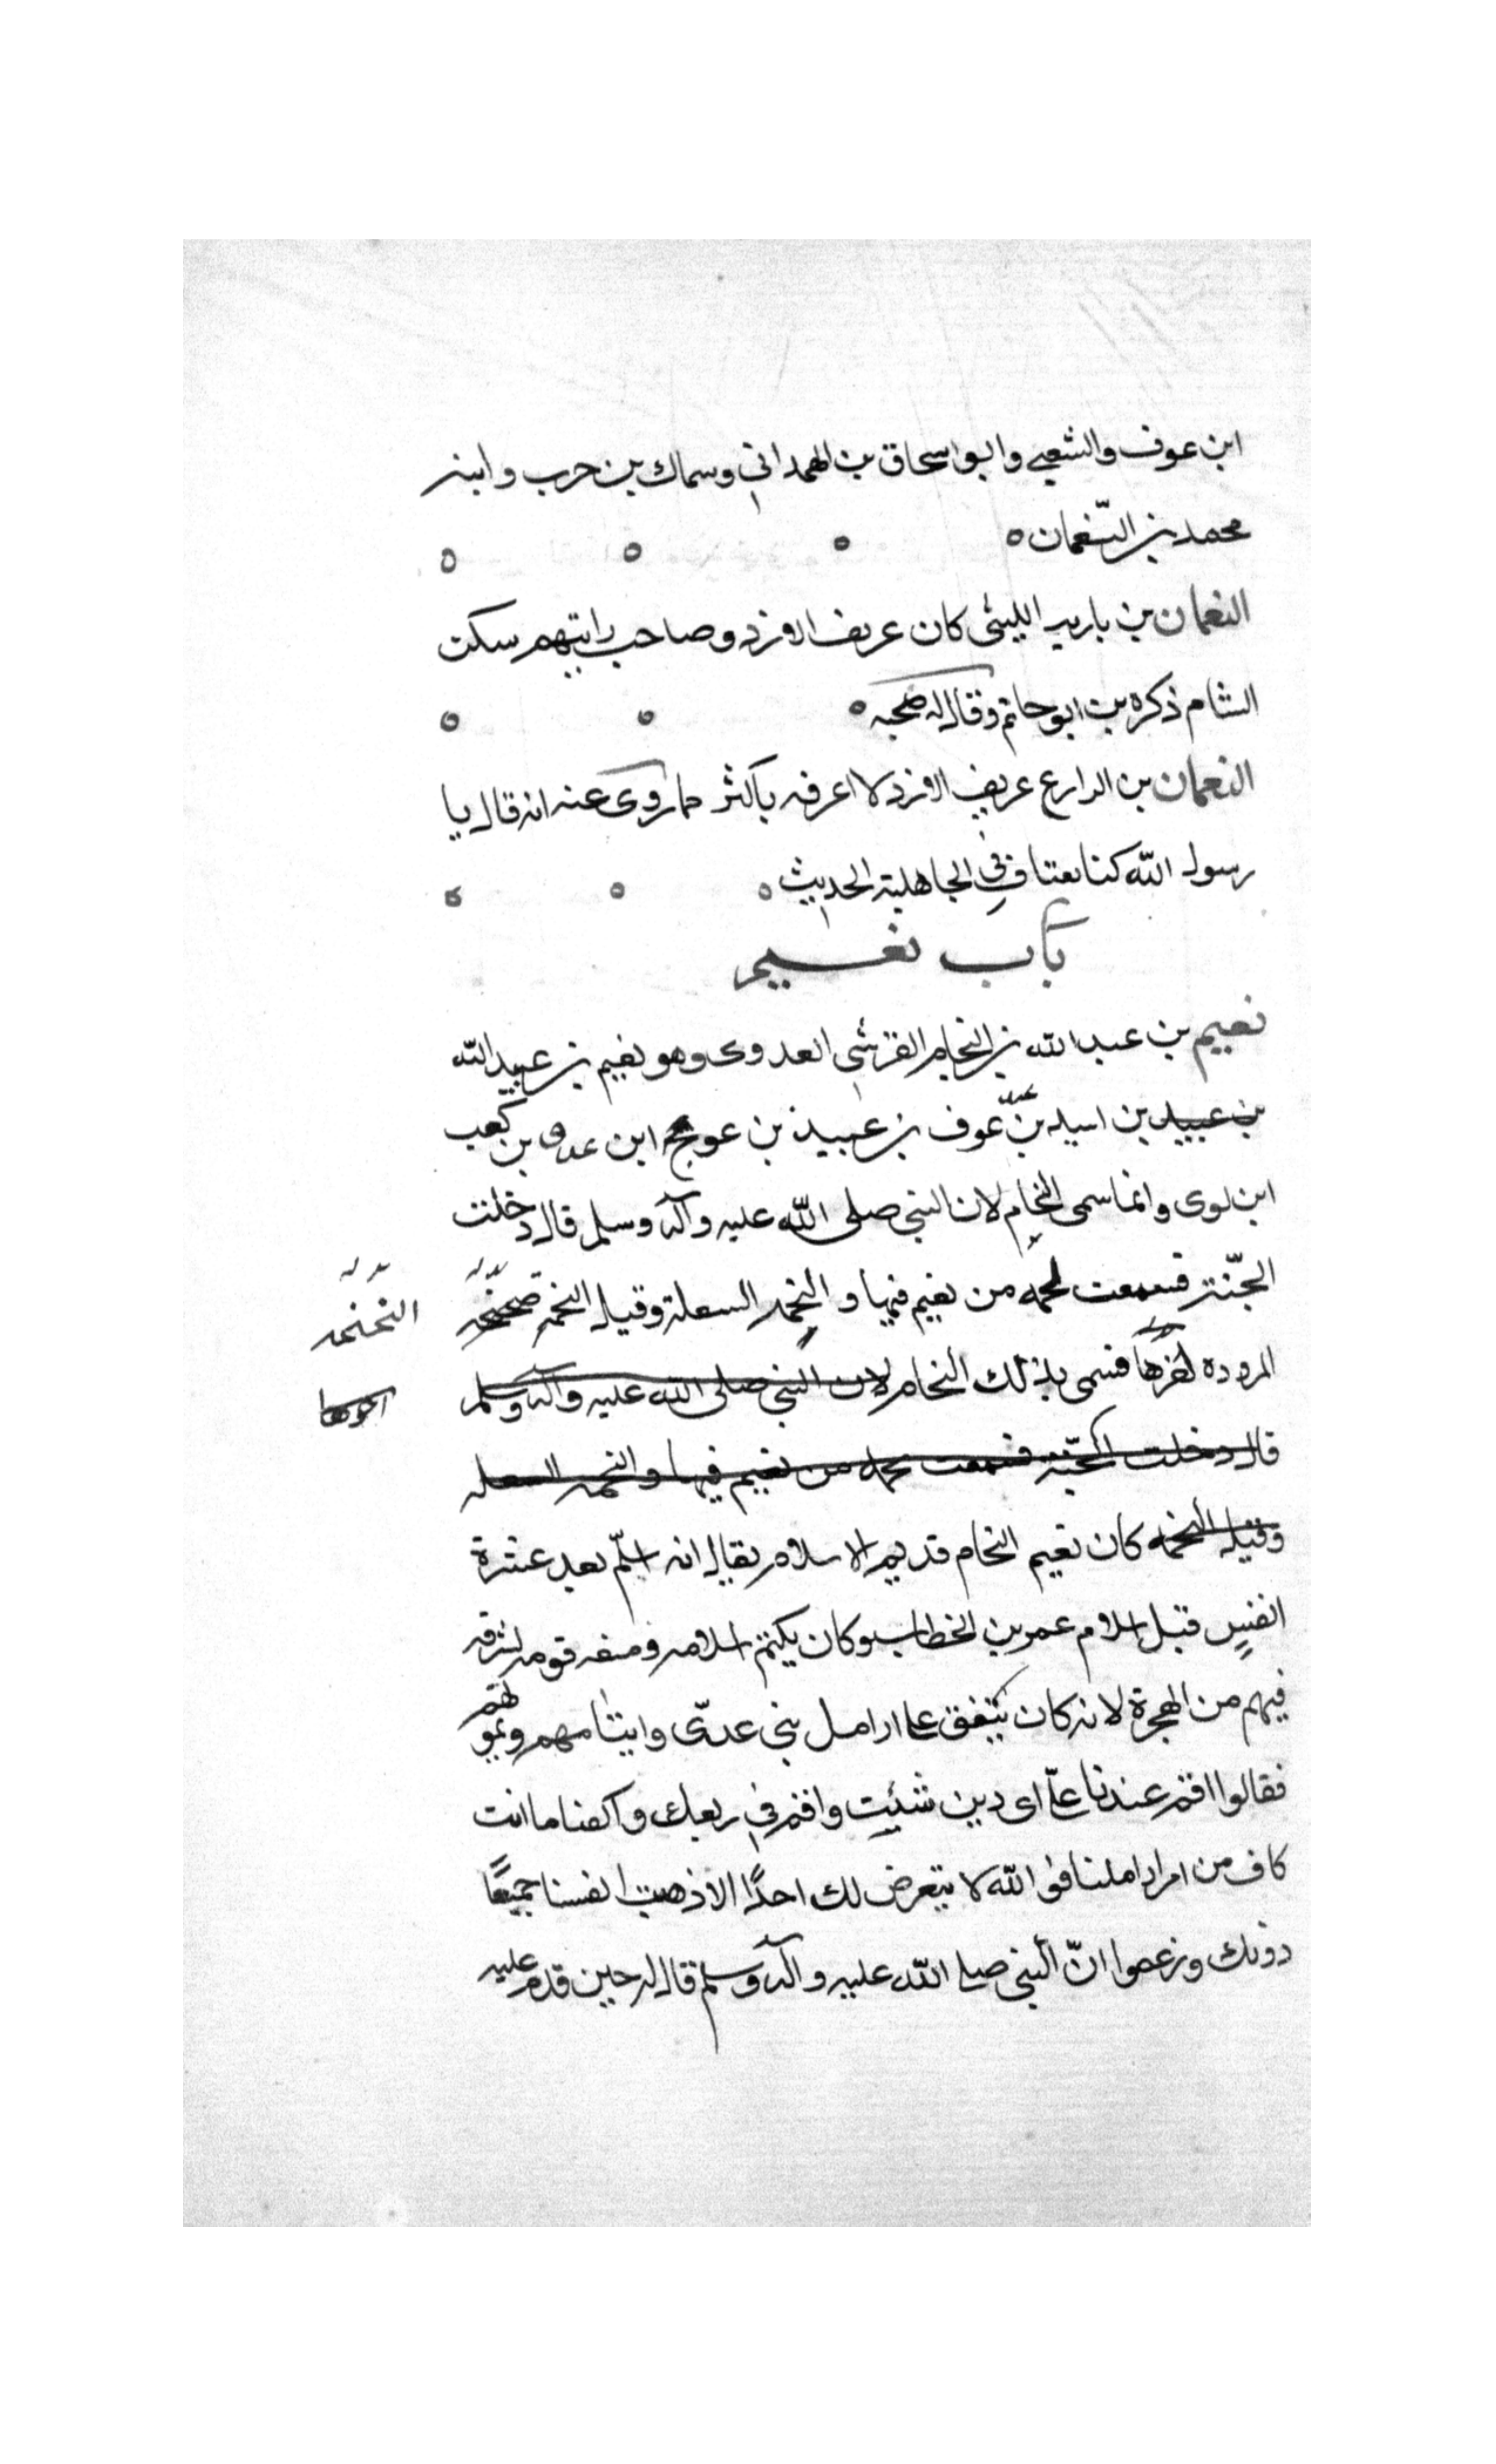 ابن عوف والشعبي وابو اسحاق بن الهمداني وسماك بن حرب وابنه
محمد بن النّعمان
النعمان بن باريه الليثى كان عريف الازد وصاحب رايتهم سكن
الشام ذكره بن ابو حاتم وقال له صحبه
النعمان بن الدارع عريف الازد لا اعرفه باكثر مما روى عنه انه قال يا
رسول الله كنا نعتاف في الجاهلية الحديث
باب نعيم
نعيم بن عبد الله بن النحام القرشى العدوى وهو نعيم بن عبد الله
بن عبيد بن اسيد بن عبد عوف بن عبيد بن عويج ابن عدى بن كعب
ابن لوى وانما سمى النحام لان النبي صلى الله عليه وآله وسلم قال دخلت
الجنّة فسمعت نحمه من نعيم فيها والنحمه السعلة وقيل النحمه
النحنحه
الممدوده اخرها فسمى بذلك النحام لان النبي صلى الله عليه وآله وسلم
قال دخلت الجنّة فسمعت نحمه من نعيم فيها والنحمه السعله
وقيل النحمه كان نعيم النحام قديم الاسلام يقال انه اسلم بعد عشرة
انفس قبل اسلام عمر بن الخطاب وكان يكتم اسلامه ومنعه قومه لشرفه
فيهم من الهجرة لانه كان ينفق على ارامل بنى عدىّ وايتامهم ويمونهم
فقالوا اقم عندنا علىّ اى دين شئت واقم في ربعك واكفنا ما انت
كاف من امر اراملنا فوالله لا يتعرض لك احدًا الا ذهبت انفسنا جميعًا
دونك وزعموا انّ النبي صلى الله عليه وآله وسلم قال له حين قدم عليه